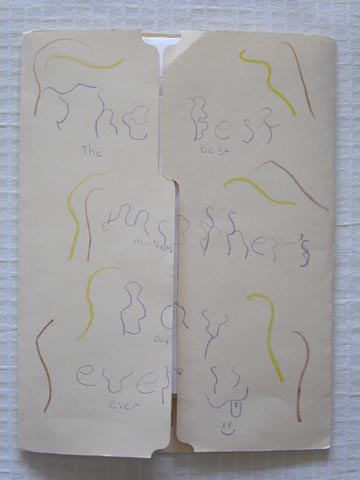 The Best
The best
Mother's
mothers
Day
Day
ever
ever